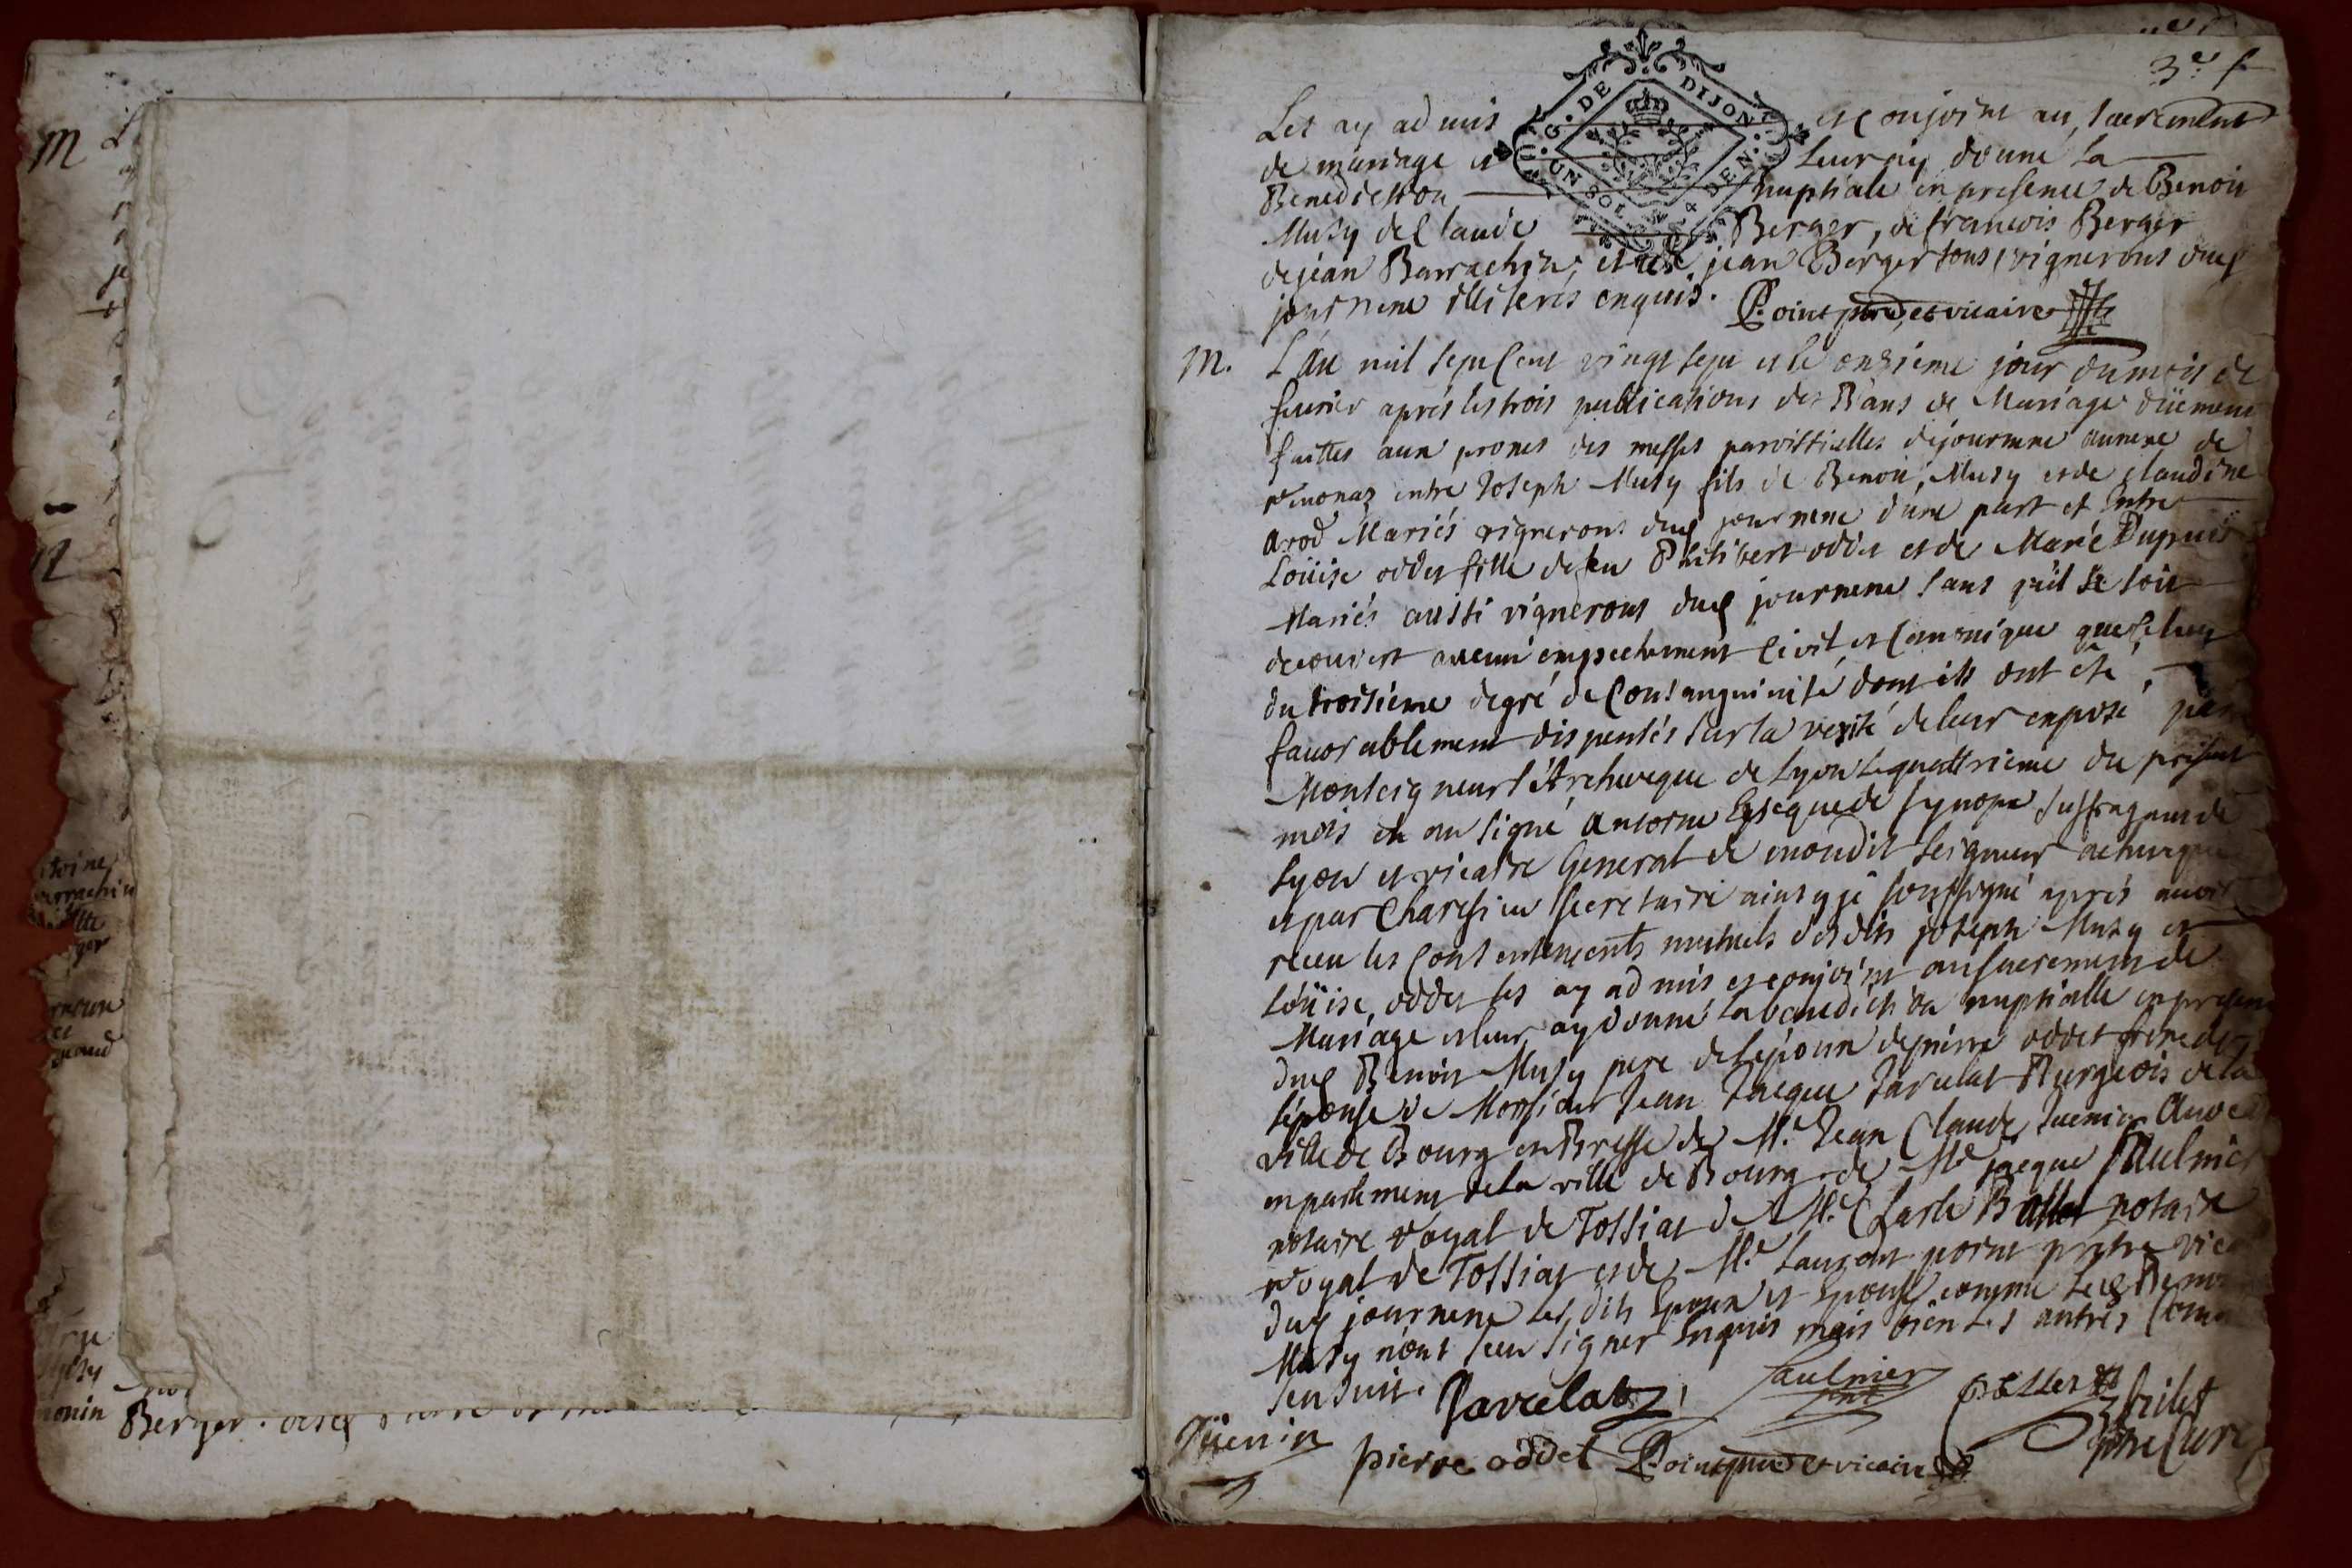 M
toine
arrachin
ger
Berger.
3e f
G. DE DIJON
UN SOL 4 DEN.
Les ay admis et conjoint au sacrement
de mariage et leur ay donné la
Benediction nuptiale en presence de Benoit
Musy de Claude Berger, de francois Berger
de jean Barrachin, et de jean Berger tous vignerons dud
journene illiterés enquis. Point ptre et vicaire
M. L'an mil sept cent vingt sept et le onzieme jour du mois de
feurier aprés les trois publications des Bans de Mariage düement
faittes aux prones des messes parroissialles de journene annexe de
reuonaz entre Joseph Musy fils de Benoit Musy et de claudine
arod Mariés vignerons dud journene d'une part et Entre
Loüise oddet fille de feu Philibert oddet et de Marie Dupuis
Mariés aussi vignerons dud journene sans qu'il se soit
decouvert aucun empechement civil et canonique que celuy
du troisieme degré de Consanguinité dont ils ont eté
favorablement dispensés sur la verité de leur exposé par
Monseigneur l'Archeveque de Lyon le quattrieme du present
mois et an signé antoine Eveque de synope suffragant de
Lyon et vicaire General de mondit seigneur archeveque
et par secretaire ainsy je soussigné aprés avoir
receu les consentements mutuels desdits joseph Musy et
Loüise oddet les ay admis et conjoint au sacrement de
Mariage et leur ay donné la benediction nuptialle en presence
dud Benoit Musy pere de l'epoux de pierre oddet frere de
l'epouse de Monsieur Jean Jacque Jarcelat Burgeois de la
ville de Bourg en Bresse de Mr. Jean Claude Juenin
en parlement de la ville de Bourg de Me jacque Saulnier
notaire royal de Tossiat de Me. Charle Ballet notaire
royal de Tossiat et de Mr. Laurent point pretre
dud journene lesdits Epoux et Epouse comme led Benoit
Musy n'ont sceu signer Enquis mais bien les autres
sensuit. Jarcelat Saulnier
Jüenin pierre oddet Point ptre et vicaire ptre Curé